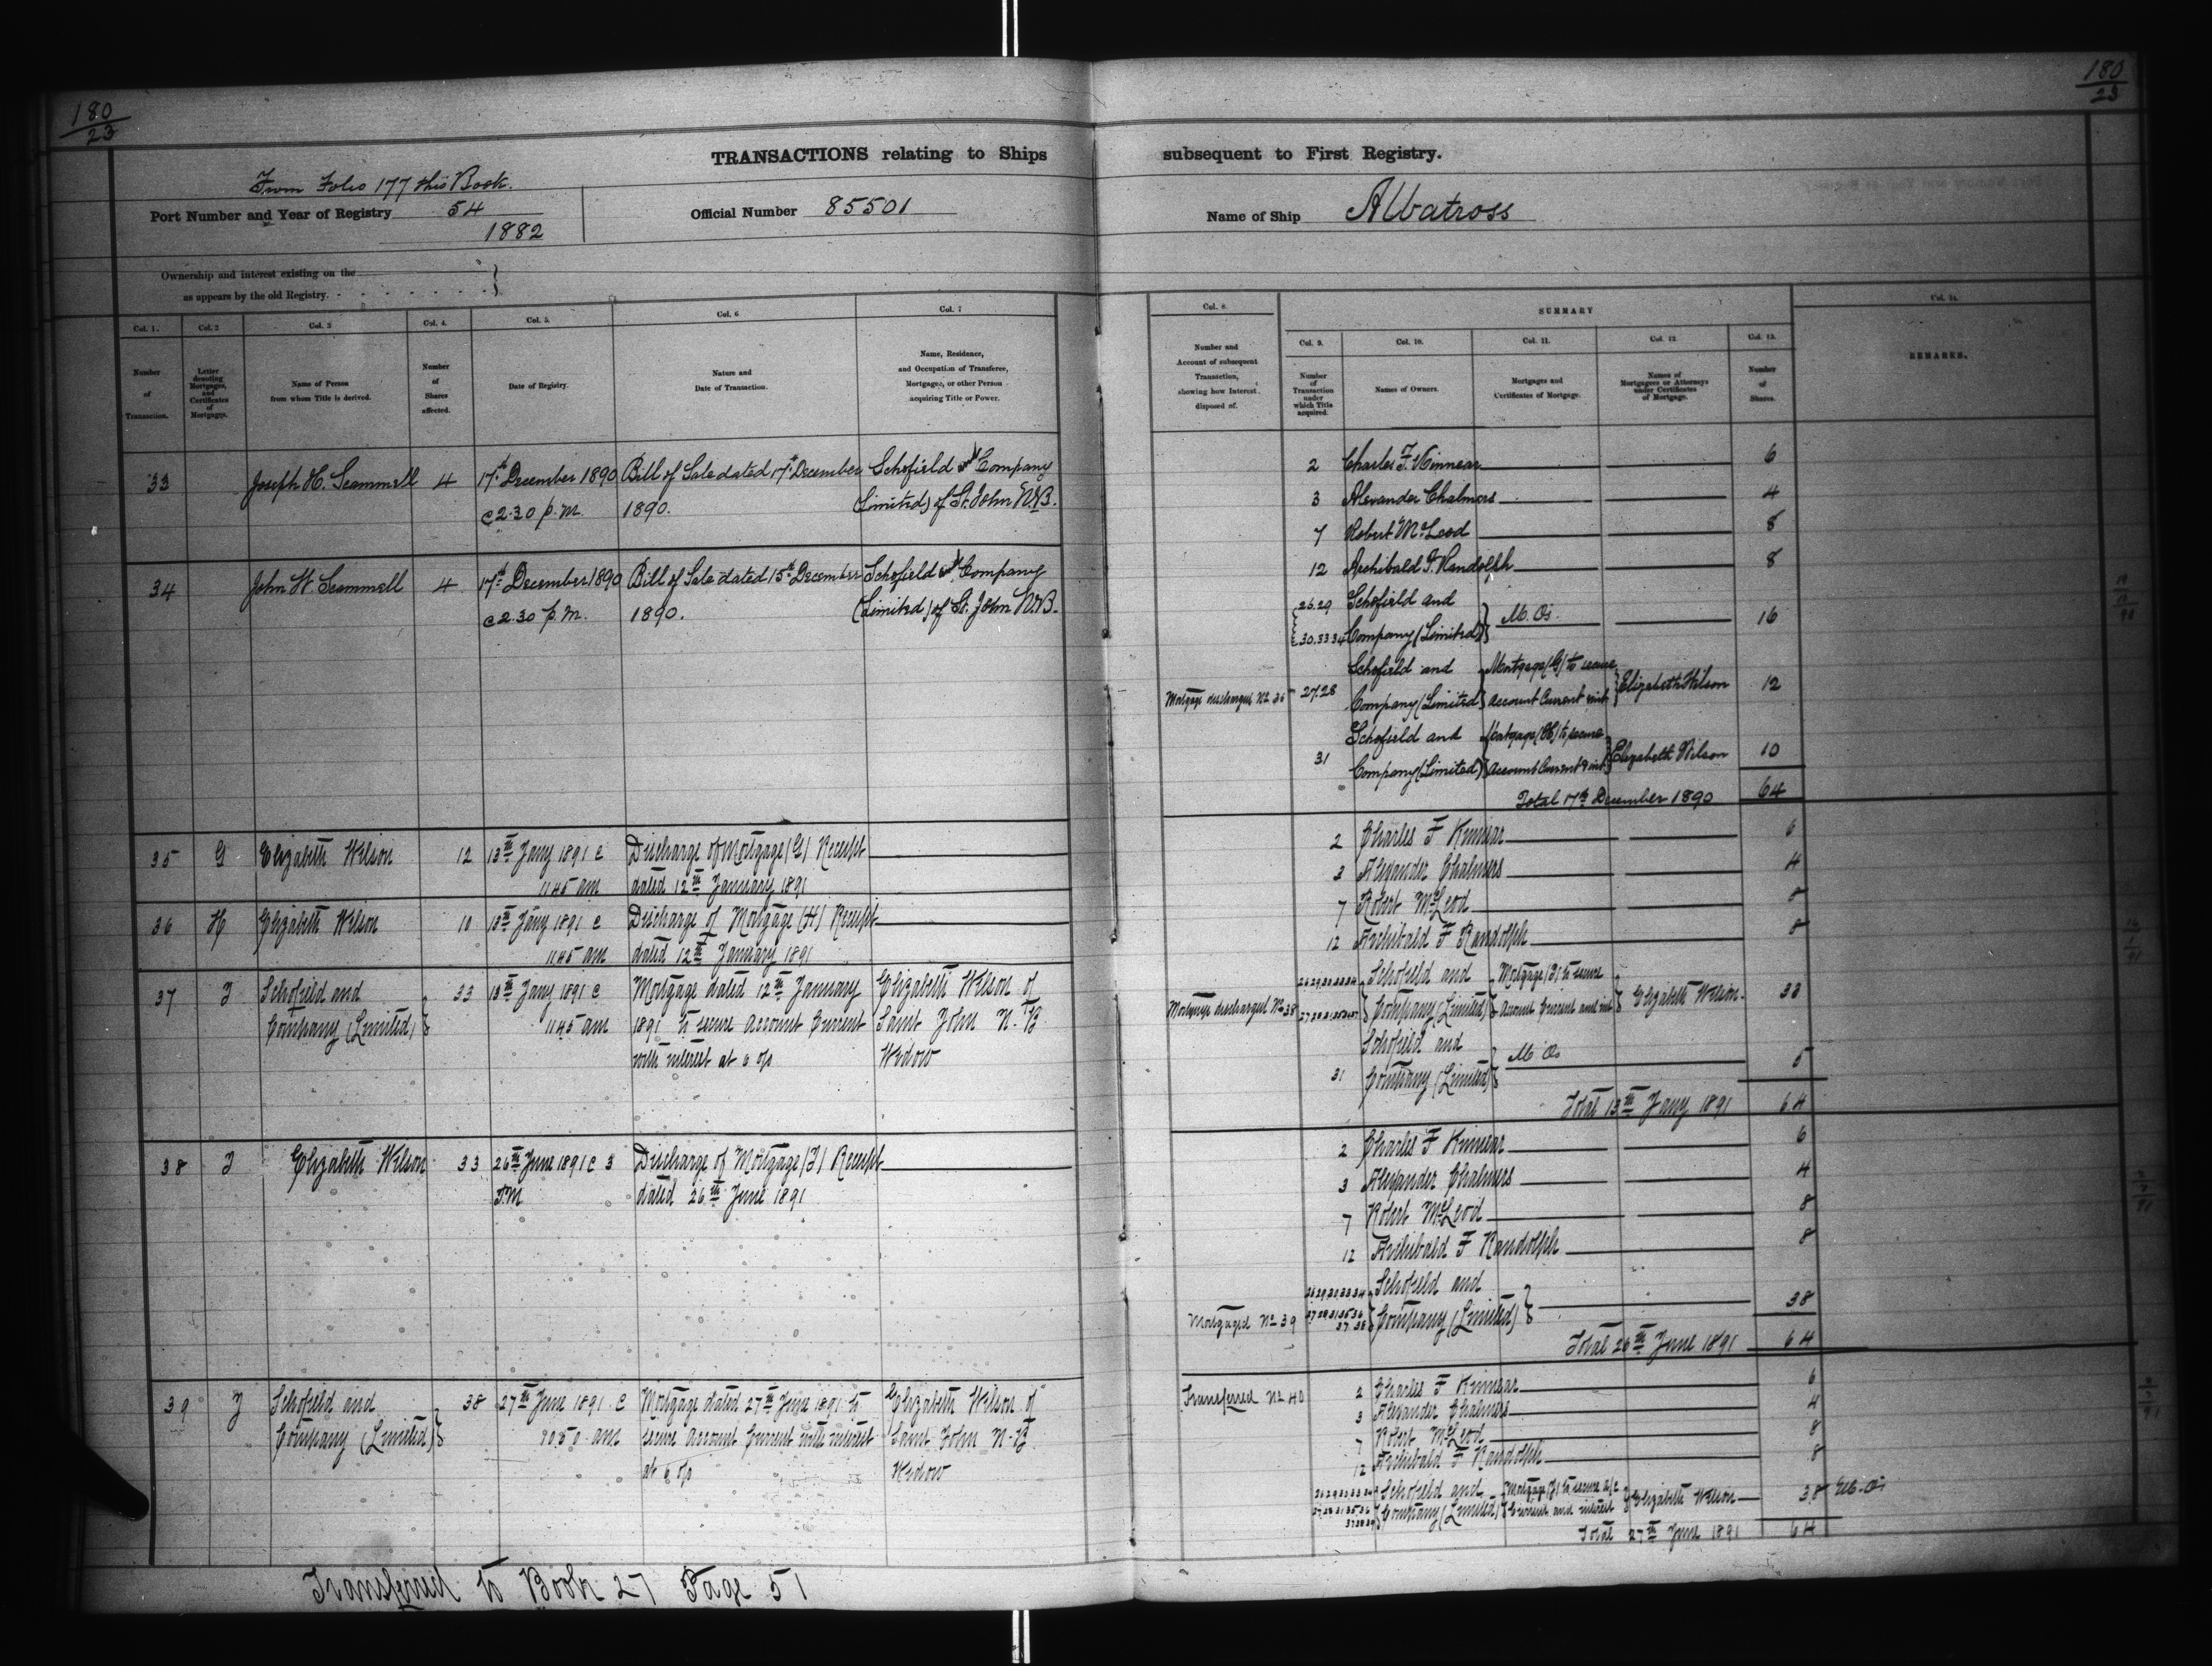 180
23
180
23
TRANSACTIONS relating to Ships subsequent to First Registry.
From Folio 177 this Book.
Port Number and Year of Registry 54
1882
Official Number 85501
Name of Ship Albatross
Ownership and interest existing on the
as appears by the old Registry.
Col. 1. Col. 2 Col. 3 Col. 4. Col. 5. Col. 6 Col. 7
Number of Transaction.
Letter denoting Mortgages, and Certificates of Mortgages.
Name of Person from whom Title is derived.
Number of Shares affected.
Date of Registry.
Nature and Date of Transaction.
Name, Residence, and Occupation of Transferee, Mortgagee, or other Person acquiring Title or Power.
33 Joseph H. Scammell 4 17th December 1890 Bill of Sale dated 17th December Schofield and Company
@ 2.30 p.m. 1890. (Limited) of St. John N.B.
34 John W. Scammell 4 17th December 1890 Bill of Sale dated 15th December Schofield and Company
@ 2.30 p.m. 1890. (Limited) of St. John N.B.
35 G Elizabeth Wilson 12 13th Jany 1891 @ Discharge of Mortgage (G) Receipt
11.45 am dated 12th January 1891
36 H Elizabeth Wilson 10 13th Jany 1891 @ Discharge of Mortgage (H) Receipt
11.45 am dated 12th January 1891
37 I Schofield and 33 13th Jany 1891 @ Mortgage dated 12th January Elizabeth Wilson of
Company (Limited) 11.45 am 1891 to secure Account Current Saint John N.B.
with interest at 6 o/o Widow
38 I Elizabeth Wilson 33 26th June 1891 @ 3 Discharge of Mortgage (I) Receipt
P.M dated 26th June 1891
39 J Schofield and 38 27th June 1891 @ Mortgage dated 27th June 1891 to Elizabeth Wilson of
Company (Limited) 10.50 am secure Account Current with interest Saint John N.B
at 6 o/o Widow
Transferred to Book 27 Page 51
Col. 8. SUMMARY Col. 14.
Col. 9. Col. 10. Col. 11. Col. 12 Col. 13.
Number and Account of subsequent Transaction, showing how Interest disposed of.
Number of Transaction under which Title acquired.
Names of Owners.
Mortgages and Certificates of Mortgage.
Names of Mortgagees or Attorneys under Certificates of Mortgage.
Number of Shares.
REMARKS.
2 Charles F. Kinnear 6
3 Alexander Chalmers 4
7 Robert McLeod 8
12 Archibald F. Randolph 8
26.29 Schofield and
30.33 34 Company (Limited) M. Os. 16
Schofield and Mortgage (G) to secure
Mortgage discharged No 35 27.28 Company (Limited) Account Current & int Elizabeth Wilson 12
Schofield and Mortgage (H) to secure
31 Company (Limited) Account Current & int Elizabeth Wilson 10
Total 17th December 1890 64
2 Charles F Kinnear 6
3 Alexander Chalmers 4
7 Robert McLeod 8
12 Archibald F Randolph 8
Schofield and Mortgage (I) to secure
Mortgage discharged No 38 Company (Limited) Account Current and int Elizabeth Wilson 33
Schofield and
31 Company (Limited) M Os 5
Total 13th Jany 1891 64
2 Charles F Kinnear 6
3 Alexander Chalmers 4
7 Robert McLeod 8
12 Archibald F Randolph 8
Schofield and
Mortgaged No 39 Company (Limited) 38
Total 26th June 1891 64
Transferred No 40 2 Charles F Kinnear 6
3 Alexander Chalmers 4
7 Robert McLeod 8
12 Archibald F Randolph 8
Schofield and Mortgage (J) to secure a/c
Company (Limited) Current and interest Elizabeth Wilson 38
Total 27th June 1891 64